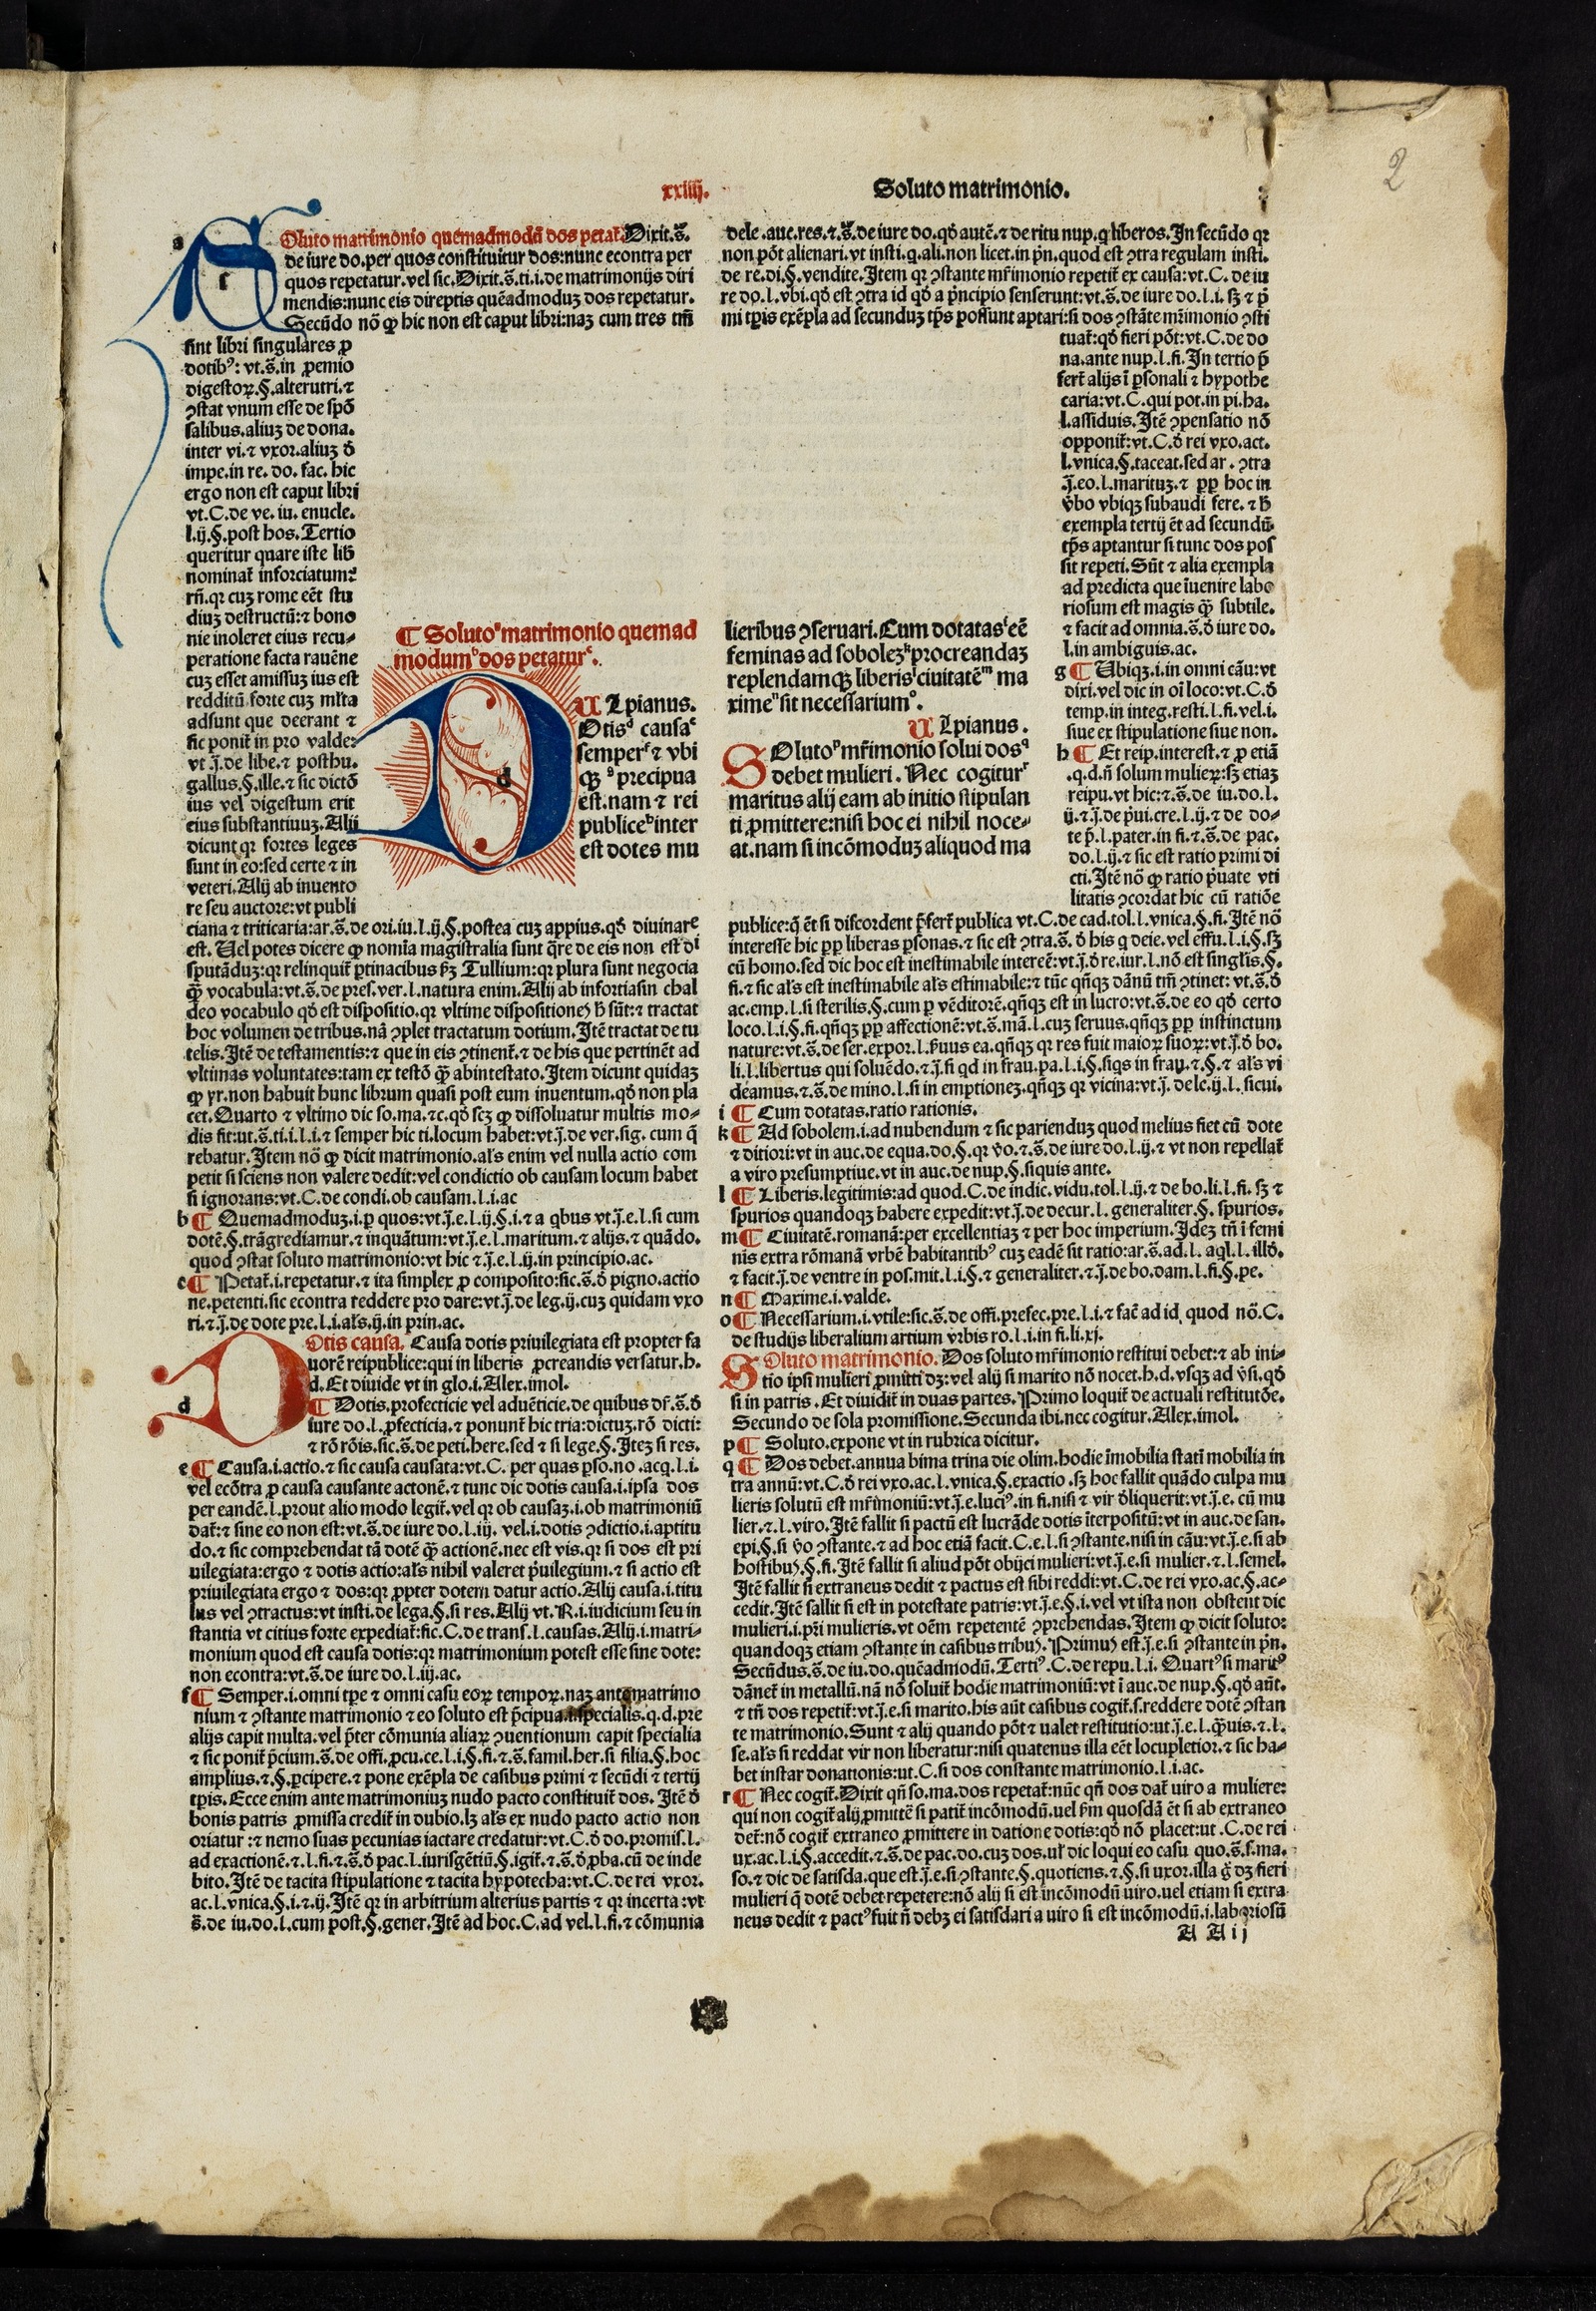 2
xxiiij.
Soluto matrimonio.
Oluto matrimonio quemadmodũ dos petat̃. Dixit.s̃.
de iure do.per quos constituitur dos:nunc econtra per
quos repetatur.vel sic.Dixit.s̃.ti.i.de matrimonijs diri
mendis:nunc eis direptis quẽadmoduz dos repetatur.
Secũdo nõ ꝙ hic non est caput libri:naz cum tres tm̃
sint libri singulares ꝓ
dotibꝰ: vt.s̃.in ꝓemio
digestoꝝ.§.alterutri.⁊
ꝯstat vnum esse de spõ
salibus.aliuz de dona.
inter vi.⁊ vxor.aliuz ð
impe.in re. do. fac. hic
ergo non est caput libri
vt.C.de ve. iu. enucle.
l.ij.§.post hos. Tertio
queritur quare iste lib̃
nominat̃ inforciatum:
rñ.qꝛ cuz rome eẽt stu
diuz destructũ:⁊ bono
nie inoleret eius recu-
peratione facta rauẽne
cuz esset amissuz ius est
redditũ forte cuz ml̃ta
adsunt que deerant ⁊
sic ponit̃ in pro valde:
vt j̃.de libe.⁊ posthu.
gallus.§.ille.⁊ sic dictõ
ius vel digestum erit
eius substantiuuz.Alij
dicunt qꝛ fortes leges
sunt in eo:sed certe ⁊ in
veteri.Alij ab inuento
re seu auctore:vt publi
ciana ⁊ triticaria:ar.s̃.de ori.iu.l.ij.§.postea cuz appius.qð diuinare
est. Uel potes dicere ꝙ nomĩa magistralia sunt q̃re de eis non est di
sputãduz:qꝛ relinquit̃ ꝑtinacibus ẜz Tullium:qꝛ plura sunt negocia
q̃ȝ vocabula:vt.s̃.de pres.ver.l.natura enim.Alij ab infortiasin chal
deo vocabulo qð est dispositio.qꝛ vltime dispositiones h̃ sũt:⁊ tractat
hoc volumen de tribus.nã ꝯplet tractatum dotium.Itẽ tractat de tu
telis.Itẽ de testamentis:⁊ que in eis ꝯtinent̃.⁊ de his que pertinẽt ad
vltimas voluntates:tam ex testõ q̃ȝ abintestato.Item dicunt quidaz
ꝙ yr.non habuit hunc librum quasi post eum inuentum.qð non pla
cet.Quarto ⁊ vltimo dic so.ma.⁊c.qð scz ꝙ dissoluatur multis mo-
dis fit:ut.s̃.ti.i.l.i.⁊ semper hic ti.locum habet:vt.j̃.de ver.sig. cum q̃
rebatur.Item nõ ꝙ dicit matrimonio.als̃ enim vel nulla actio com
petit si sciens non valere dedit:vel condictio ob causam locum habet
si ignorans:vt.C.de condi.ob causam.l.i.ac
b ¶ Quemadmoduz.i.ꝑ quos:vt.j̃.e.l.ij.§.i.⁊ a qbus vt.j̃.e.l.si cum
dotẽ.§.trãgrediamur.⁊ inquãtum:vt.j̃.e.l.maritum.⁊ alijs.⁊ quãdo.
quod ꝯstat soluto matrimonio:vt hic ⁊.j̃.e.l.ij.in principio.ac.
c ¶ Petat̃.i.repetatur.⁊ ita simplex ꝓ composito:sic.s̃.ð pigno.actio
ne.petenti.sic econtra reddere pro dare:vt.j̃.de leg.ij.cuz quidam vxo
ri.⁊.j̃.de dote pre.l.i.als̃.ij.in prin.ac.
¶ Solutoᵃ matrimonio quemad
modumᵇ dos petaturᶜ.
ULpianus.
Otisᵈ causaᵉ
semperᶠ ⁊ vbi
qȝ ᵍ precipua
est.nam ⁊ rei
publiceʰ inter
est dotes mu
Dotis causa. Causa dotis priuilegiata est propter fa
uorẽ reipublice:qui in liberis ꝓcreandis versatur.h.
d.Et diuide vt in glo.i.Alex.imol.
d ¶ Dotis.profecticie vel aduẽticie.de quibus dr̃.s̃.ð
iure do.l.ꝓfecticia.⁊ ponunt̃ hic tria:dictuz.rõ dicti:
⁊ rõ rõis.sic.s̃.de peti.here.sed ⁊ si lege.§.Itez si res.
e ¶ Causa.i.actio.⁊ sic causa causata:vt.C. per quas ꝑso.no .acq.l.i.
vel ecõtra ꝓ causa causante actonẽ.⁊ tunc dic dotis causa.i.ipsa dos
per eandẽ.l.ꝓout alio modo legit̃.vel qꝛ ob causaȝ.i.ob matrimoniũ
dat̃:⁊ sine eo non est:vt.s̃.de iure do.l.iij. vel.i.dotis ꝯdictio.i.aptitu
do.⁊ sic comprehendat tã dotẽ q̃ȝ actionẽ.nec est vis.qꝛ si dos est pri
uilegiata:ergo ⁊ dotis actio:als̃ nihil valeret p̃uilegium.⁊ si actio est
priuilegiata ergo ⁊ dos:qꝛ ꝓpter dotem datur actio.Alij causa.i.titu
lus vel ꝯtractus:vt insti.de lega.§.si res.Alij vt.R.i.iudicium seu in
stantia vt citius forte expediat̃:sic.C.de trans.l.causas.Alij.i.matri-
monium quod est causa dotis:qꝛ matrimonium potest esse sine dote:
non econtra:vt.s̃.de iure do.l.iij.ac.
f ¶ Semper.i.omni tp̃e ⁊ omni casu eoꝝ tempoꝝ.naz ante matrimo
nium ⁊ ꝯstante matrimonio ⁊ eo soluto est p̃cipua.i.specialis.q.d.pre
alijs capit multa.vel p̃ter cõmunia aliaꝝ ꝯuentionum capit specialia
⁊ sic ponit̃ p̃cium.s̃.de offi.ꝓcu.ce.l.i.§.fi.⁊.s̃.famil.her.si filia.§.hoc
amplius.⁊.§.ꝑcipere.⁊ pone exẽpla de casibus primi ⁊ secũdi ⁊ tertij
tp̃is.Ecce enim ante matrimoniuz nudo pacto constituit̃ dos. Itẽ ð
bonis patris ꝓmissa credit̃ in dubio.lȝ als̃ ex nudo pacto actio non
oriatur :⁊ nemo suas pecunias iactare credatur:vt.C.ð do.promis.l.
ad exactionẽ.⁊.l.fi.⁊.s̃.ð pac.l.iurisgẽtiũ.§.igit̃.⁊.s̃.ð ꝓba.cũ de inde
bito.Itẽ de tacita stipulatione ⁊ tacita hypotecha:vt.C.de rei vxor.
ac.l.vnica.§.i.⁊.ij.Itẽ qꝛ in arbitrium alterius partis ⁊ qꝛ incerta :vt
s̃.de iu.do.l.cum post.§.gener.Itẽ ad hoc.C.ad vel.l.fi.⁊ cõmunia
dele .auc.res.⁊.s̃.de iure do.qð autẽ.⁊ de ritu nup.q liberos.In secũdo qꝛ
non põt alienari.vt insti.q.ali.non licet.in pñ.quod est ꝯtra regulam insti.
de re.di.§.vendite.Item qꝛ ꝯstante mr̃imonio repetit̃ ex causa:vt.C. de iu
re do.l.vbi.qð est ꝯtra id qð a p̃ncipio senserunt:vt.s̃.de iure do.l.i. sȝ ⁊ p̃
mi tp̃is exẽpla ad secunduz tp̃s possunt aptari:si dos ꝯstãte mr̃imonio ꝯsti
tuat̃:qð fieri põt:vt.C.de do
na.ante nup.l.fi.In tertio p̃
fert̃ alijs ĩ ꝑsonali ⁊ hypothe
caria:vt.C.qui pot.in pi.ha.
l.assiduis.Itẽ ꝯpensatio nõ
opponit̃:vt.C.ð rei vxo.act.
l.vnica.§.taceat.sed ar . ꝯtra
j̃.eo.l.marituz.⁊ ꝓp hoc in
ṽbo vbiqȝ subaudi fere. ⁊ h̃
exempla tertij ẽt ad secundũ
tp̃s aptantur si tunc dos pos
sit repeti.Sũt ⁊ alia exempla
ad predicta que ĩuenire labo
riosum est magis q̃ȝ subtile.
⁊ facit ad omnia.s̃.ð iure do.
l.in ambiguis.ac.
g ¶ Ubiqȝ.i.in omni cãu:vt
dixi.vel dic in oĩ loco:vt.C.ð
temp.in integ.resti.l.fi.vel.i.
siue ex stipulatione siue non.
h ¶ Et reip.interest.⁊ ꝓ etiã
.q.d.ñ solum mulieꝝ:sȝ etiaȝ
reipu.vt hic:⁊.s̃.de iu.do.l.
ij.⁊.j̃.de p̃ui.cre.l.ij.⁊ de do-
te p̃.l.pater.in fi.⁊.s̃.de pac.
do.l.ij.⁊ sic est ratio primi di
cti.Itẽ nõ ꝙ ratio p̃uate vti
litatis ꝯcordat hic cũ ratiõe
lieribus ꝯseruari.Cum dotatasⁱ eẽ
feminas ad sobolezᵏ procreandaȝ
replendamqȝ liberisˡ ciuitatẽᵐ ma
ximeⁿ sit necessariumᵒ.
ULpianus.
SOlutoᵖ mr̃imonio solui dosq
debet mulieri . Nec cogiturʳ
maritus alij eam ab initio stipulan
ti ꝓmittere:nisi hoc ei nihil noce-
at.nam si incõmoduz aliquod ma
publice:q̃ ẽt si discordent p̃fert̃ publica vt.C.de cad.tol.l.vnica.§.fi.Itẽ nõ
interesse hic ꝓp liberas ꝑsonas.⁊ sic est ꝯtra.s̃. ð his q deie. vel effu.l.i.§.sȝ
cũ homo.sed dic hoc est inestimabile intereẽ:vt.j̃.ð re.iur.l.nõ est singl̃is.§.
fi.⁊ sic als̃ est inestimabile als̃ estimabile:⁊ tũc qñqȝ dãnũ tm̃ ꝯtinet: vt.s̃.ð
ac.emp.l.si sterilis.§.cum ꝑ vẽditorẽ.qñqȝ est in lucro:vt.s̃.de eo qð certo
loco.l.i.§.fi.qñqȝ ꝓp affectionẽ:vt.s̃.mã.l.cuz seruus.qñqȝ ꝓp instinctum
nature:vt.s̃.de ser.expor.l.ẜuus ea.qñqȝ qꝛ res fuit maioꝝ suoꝝ:vt.j̃.ð bo.
li.l.libertus qui soluẽdo.⁊.j̃.si qd in frau.pa.l.i.§.siqs in frau.⁊.§.⁊ als̃ vi
deamus.⁊.s̃.de mino.l.si in emptionez.qñqȝ qꝛ vicina:vt.j̃. de le.ij.l. sicui.
i ¶ Cum dotatas.ratio rationis.
k ¶ Ad sobolem.i.ad nubendum ⁊ sic pariendus quod melius fiet cũ dote
⁊ ditiori:vt in auc.de equa.do.§.qꝛ ṽo.⁊.s̃.de iure do.l.ij.⁊ vt non repellat̃
a viro presumptiue.vt in auc.de nup.§.siquis ante.
l ¶ Liberis.legitimis:ad quod.C.de indic.vidu.tol.l.ij.⁊ de bo.li.l.fi. sȝ ⁊
spurios quandoqȝ habere expedit:vt.j̃.de decur.l. generaliter.§. spurios.
m ¶ Ciuitatẽ.romanã:per excellentiaȝ ⁊ per hoc imperium.Idez tñ ĩ femi
nis extra rõmanã vrbẽ habitantibꝰ cuz eadẽ sit ratio:ar.s̃.ad.l. aql.l. illð.
⁊ facit.j̃.de ventre in pos.mit.l.i.§.⁊ generaliter.⁊.j̃.de bo.dam.l.fi.§.pe.
n ¶ Maxime.i.valde.
o ¶ Necessarium.i.vtile:sic.s̃.de offi.prefec.pre.l.i.⁊ fac̃ ad id quod nõ.C.
de studijs liberalium artium vrbis ro.l.i.in fi.li.xj.
SOluto matrimonio. Dos soluto mr̃imonio restitui debet:⁊ ab ini-
tio ipsi mulieri ꝓmitti dȝ:vel alij si marito nõ nocet.h.d.vsqȝ ad ṽsi.qð
si in patris .Et diuidit̃ in duas partes.Primo loquit̃ de actuali restitutõe.
Secundo de sola promissione.Secunda ibi.nec cogitur.Alex.imol.
p ¶ Soluto.expone vt in rubrica dicitur.
q ¶ Dos debet.annua bima trina die olim.hodie ĩmobilia stati mobilia in
tra annũ:vt.C.ð rei vxo.ac.l.vnica.§.exactio .sȝ hoc fallit quãdo culpa mu
lieris solutũ est mr̃imoniũ:vt.j̃.e.luciꝰ.in fi.nisi ⁊ vir ðliquerit:vt.j̃.e. cũ mu
lier.⁊.l.viro.Itẽ fallit si pactũ est lucrãde dotis ĩterpositũ:vt in auc.de san.
epi.§.si ṽo ꝯstante.⁊ ad hoc etiã facit.C.e.l.si ꝯstante.nisi in cãu:vt.j̃.e.si ab
hostibus.§.fi.Itẽ fallit si aliud põt obijci mulieri:vt.j̃.e.si mulier.⁊.l.semel.
Itẽ fallit si extraneus dedit ⁊ pactus est sibi reddi:vt.C.de rei vxo.ac.§.ac-
cedit.Itẽ fallit si est in potestate patris:vt.j̃.e.§.i.vel vt ista non obstent dic
mulieri.i.pr̃i mulieris.vt oẽm repetentẽ ꝯprehendas.Item ꝙ dicit soluto:
quandoqȝ etiam ꝯstante in casibus tribus. Primus est.j̃.e.si ꝯstante in pñ.
Secũdus.s̃.de iu.do.quẽadmodũ.Tertiꝰ.C.de repu.l.i. Quartꝰ si maritꝰ
dãnet̃ in metallũ.nã nõ soluit̃ hodie matrimoniũ:vt ĩ auc.de nup.§.qð aũt.
⁊ tñ dos repetit̃:vt.j̃.e.si marito.his aũt casibus cogit̃.s.reddere dotẽ ꝯstan
te matrimonio.Sunt ⁊ alij quando põt ⁊ ualet restitutio:ut.j̃.e.l.q̃ȝuis.⁊.l.
se.als̃ si reddat vir non liberatur:nisi quatenus illa eẽt locupletior.⁊ sic ha-
bet instar donationis:ut.C.si dos constante matrimonio.l.i.ac.
r ¶ Nec cogit̃.Dixit qñ so.ma.dos repetat̃:nũc qñ dos dat̃ uiro a muliere:
qui non cogit̃ alij ꝓmittẽ si patit̃ incõmodũ.uel ẜm quosdã ẽt si ab extraneo
det̃:nõ cogit̃ extraneo ꝓmittere in datione dotis:qð nõ placet:ut .C.de rei
ux.ac.l.i.§.accedit.⁊.s̃.de pac.do.cuz dos.ul̃ dic loqui eo casu quo.s̃.f.ma.
so.⁊ dic de satisda.que est.j̃.e.si ꝯstante.§.quotiens.⁊.§.si uxor.illa g̃ dȝ fieri
mulieri q̃ dotẽ debet repetere:nõ alij si est incõmodũ uiro.uel etiam si extra
neus dedit ⁊ pactꝰ fuit ñ debȝ ei satisdari a uiro si est incõmodũ.i.laboriosũ
A A ij